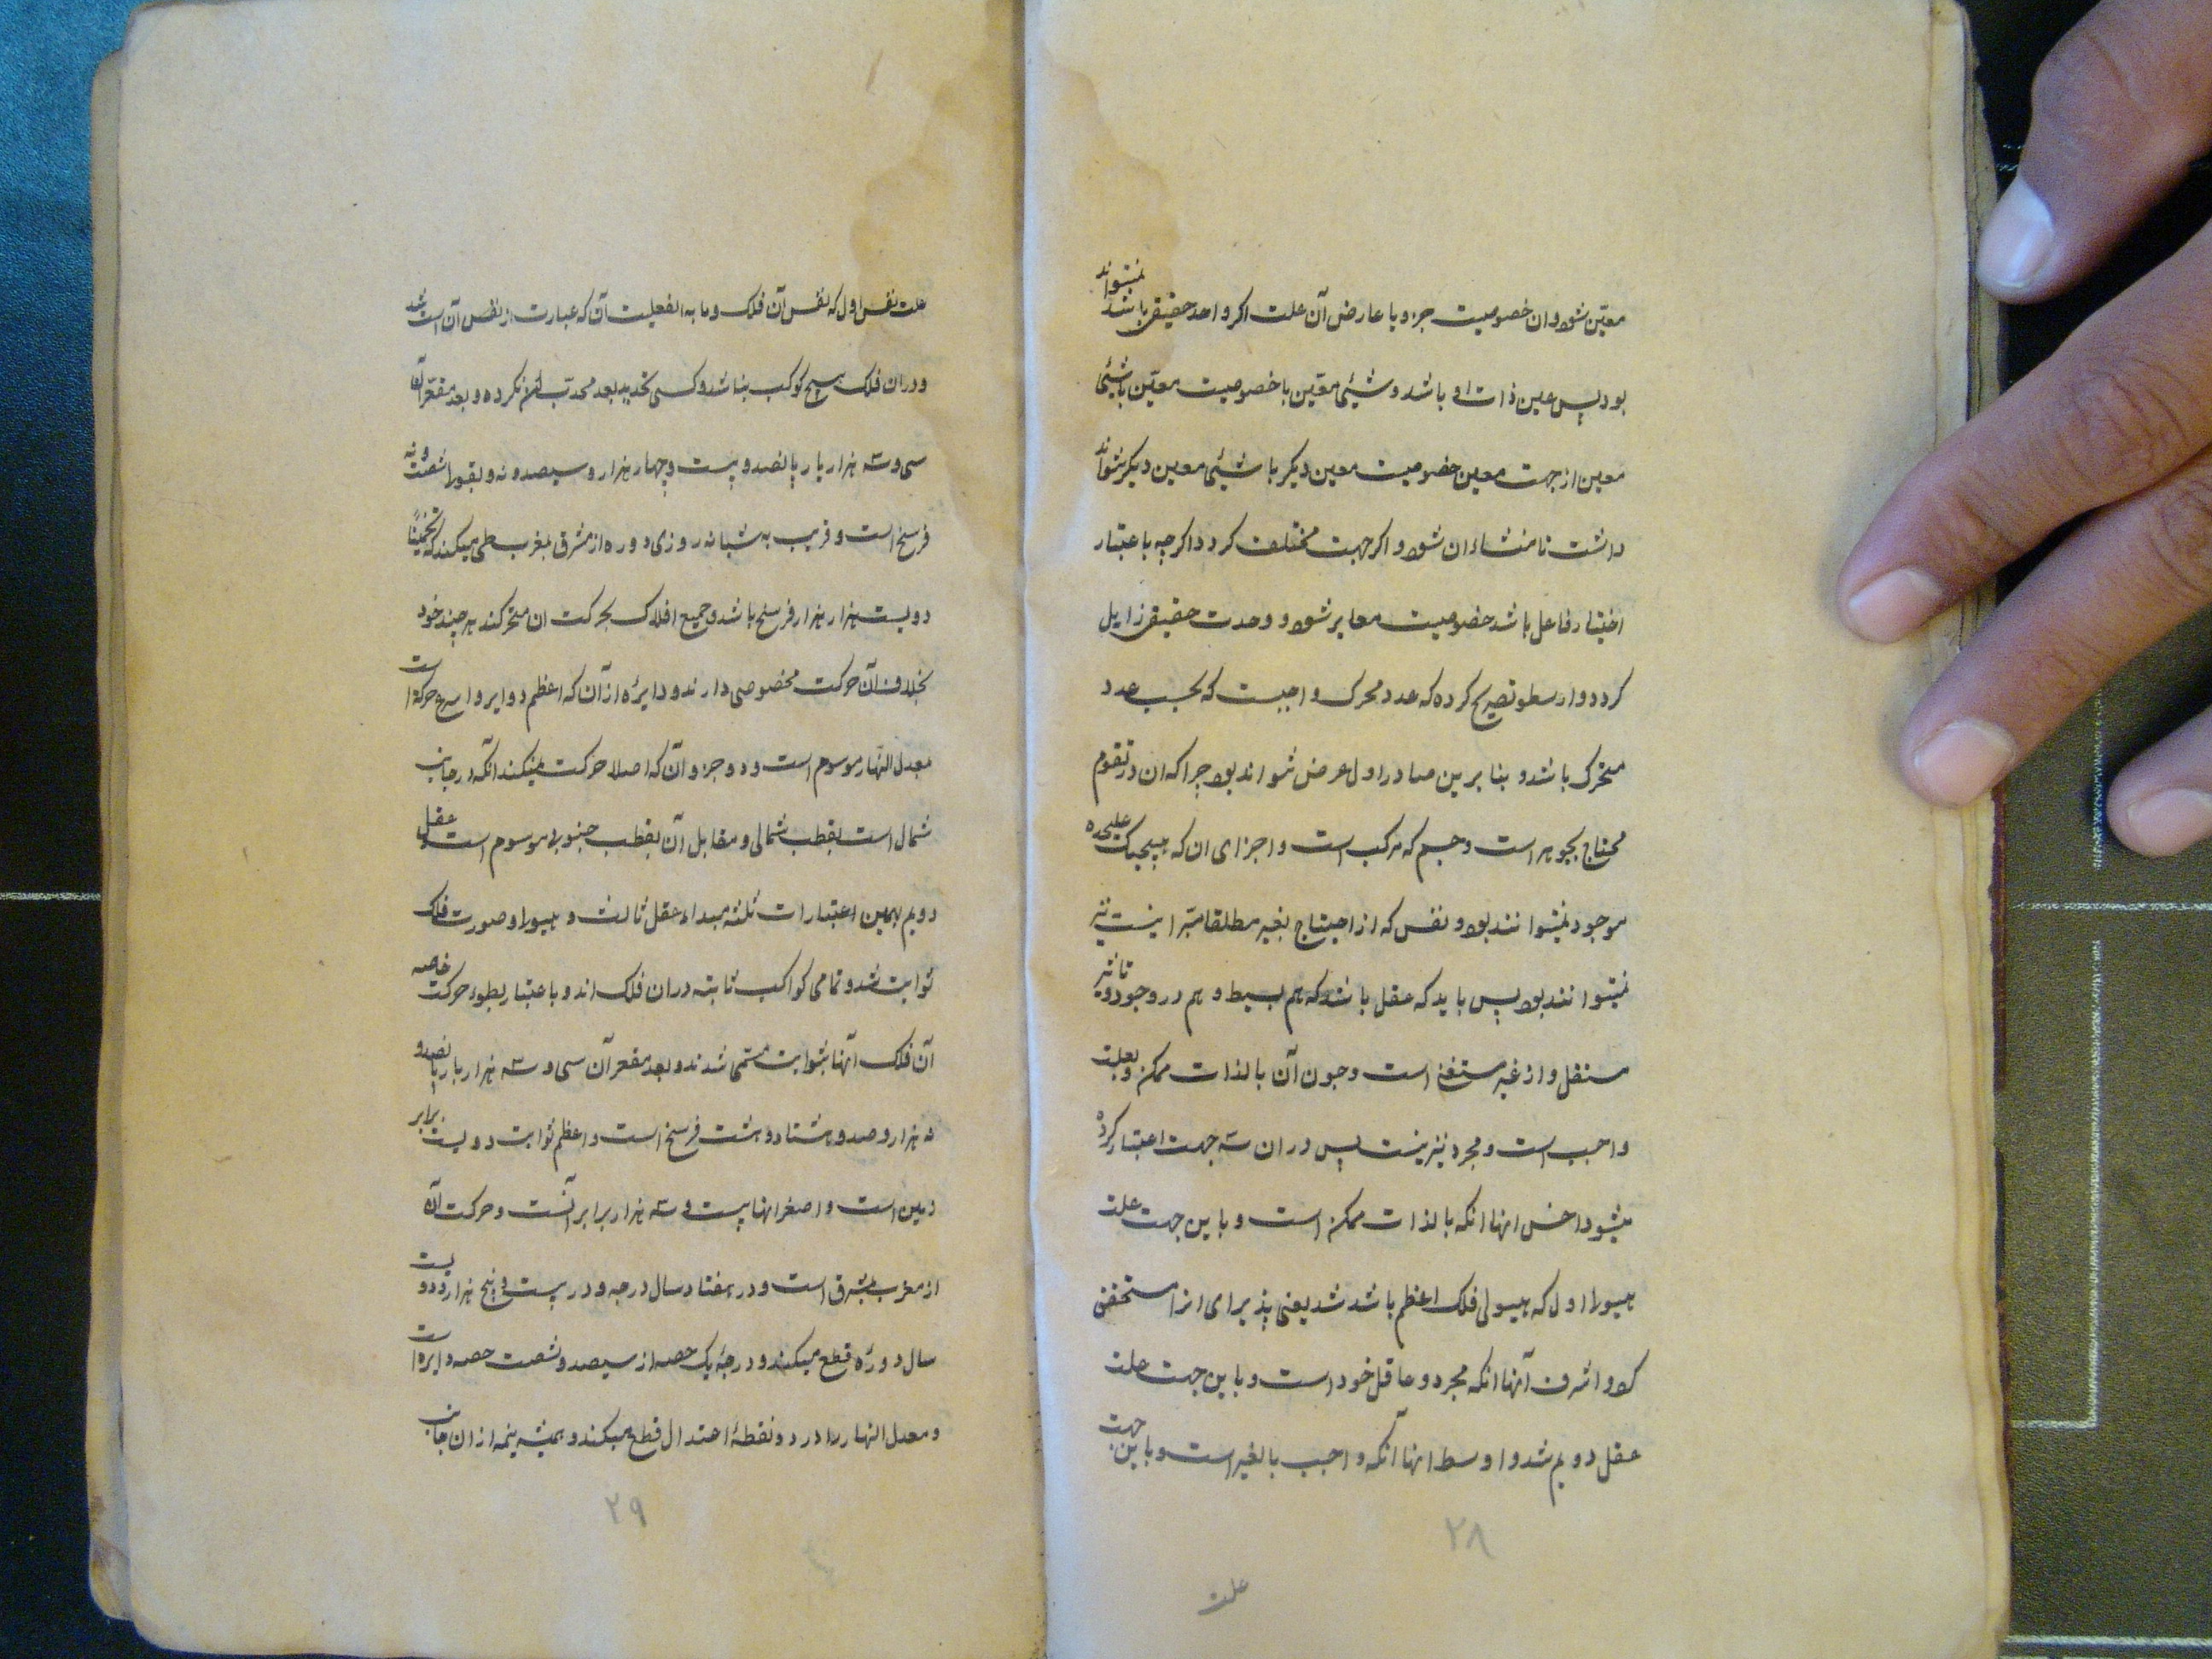 معیّن شود و ان خصوصیت جزو یا عارض آن علت اکر واحد حقیقی باشد نمیتواند
بود پس عین ذات او باشد و شیئی معیّن با خصوصیت معیّن با شیئی
معین از جهت معین خصوصیت معین دیکر با شیئی معین دیکر نتواند
داشت تا منشاء ان شود و اکر جهت مختلف کردد اکرچه باعتبار
اختیار فاعل باشد خصوصیت مغایر شود و وحدت حقیقی زایل
کردد و ارسطو تصریح کرده که عدد محرک واجبست که بحسب عدد
متحرک باشد و بنابرین صادر اول عرض نتواند بود چراکه ان در تقوم
محتاج بجوهر است و جسم که مرکب است و اجزای ان که هیچیک علیحده
موجود نمیتوانند بود و نفس که از احتیاج بغیر مطلقا مبّرا نیست نیز
نمیتوانند بود پس باید که عقل باشد که هم بسیط و هم در وجود و تاثیر
مستقل و از غیر مستغنی است و چون آن بالذات ممکن و بعلت
واجب است و مجرد نیز نیست پس در ان سه جهت اعتبار کرده
میشود اخس انها انکه بالذات ممکن است و باین جهت علت
هیولی اول که هیولی فلک اعظم باشد شد یعنی پذیرای انرا مستحفن
کرد و اشرف آنها انکه مجرد و عاقل خود است و باین جهت علت
عقل دویم شد و اوسط انها آنکه واجب بالغیر است و باین جهت
۲۸
علت
علت نفس اول که نفس آن فلک و ما به الفعلیت آن که عبارت از نفس آن است شد
و در ان فلک هیچ کوکب نباشد و کسی تحدید بعد محدّب انرا نکرده و بعد مقعّر آنها
سی و سه هزار بار پانصد و بیست و چهار هزار و سیصد و نه و بقولی شصت و نه
فرسخ است و قریب به شبانه روزی دوره از مشرق بمغرب طی میکند که تخمینًا
دویست هزار هزار فرسخ باشد و جمیع افلاک بحرکت ان متحرکند هر چند خود
بخلاف آن حرکت مخصوصی دارند و دایرهٔ از آن که اعظم دوایر و اسرع حرکة است
بمعدل النّهار موسوم است و دو جزو آن که اصلا حرکت نمیکند آنکه در جانب
شمال است بقطب شمالی و مقابل آن بقطب جنوبی موسوم است و عقل
دویم بهمین اعتبارات ثلثه مبداء عقل ثالث و هیولی و صورت فلک
ثوابت شد و تمامی کواکب ثابته در ان فلک اند و باعتبار بطوء حرکت خاصه
آن فلک آنها بثوابت مسّمی شدند و بعد مقعر آن سی و سه هزار بار پانصد و
نه هزار و صد و هشتاد و هشت فرسخ است و اعظم ثوابت دویست برابر
زمین است و اصغر انها بیست و سه هزار برابر آنست و حرکت آن
از مغرب بمشرق است و در هفتاد سال درجه و در بیست و پنج هزار و دویست
سال دورهٔ قطع میکند و درجهٔ یک حصه از سیصد و شصت حصه دایره است
و معدل النهار را در دو نقطهٔ اعتدال قطع میکند و همیشه نیمه از ان جانب
۲۹